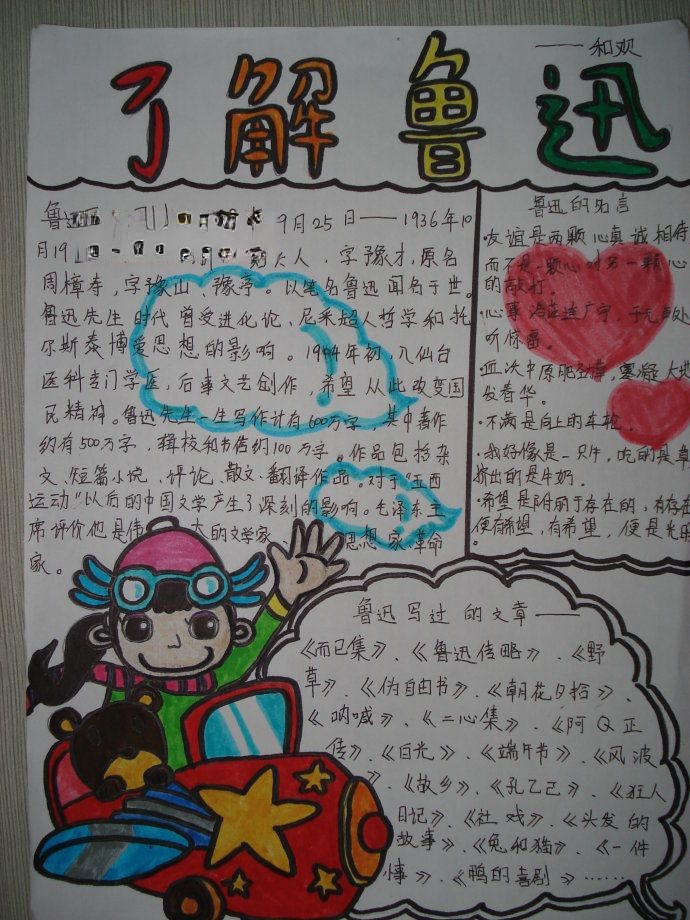 ——和欢
了解鲁迅
鲁迅 9月25日——1936年10
月19 人，字豫才，原名
周樟寿，字豫山、豫亭。以笔名鲁迅闻名于世。
鲁迅先生时代曾受进化论、尼采超人哲学和托
尔斯泰博爱思想的影响。1904年初，入仙台
医科专门学医，后事文艺创作，希望从此改变国
民精神。鲁迅先生一生写作计有600万字，其中著作
约有500万字，辑校和书信约100万字。作品包括杂
文、短篇小说、评论、散文、翻译作品。对于“五西
运动”以后的中国文学产生了深刻的影响。毛泽东主
席评价他是伟大的文学家、思想家、革命
家。
鲁迅的名言
·友谊是两颗心真诚相待
而不是一颗心对另一颗心
的敲打。
·心事浩茫连广宇，于无声处
听惊雷。
·血沃中原肥劲草，寒凝大地
发春华。
·不满是向上的车轮。
·我好像是一只牛，吃的是草
挤出的是牛奶。
·希望是附丽于存在的，有存在
便有希望，有希望，便是光明
。
鲁迅写过的文章——
《而已集》、《鲁迅传略》、《野
草》、《伪自由书》、《朝花夕拾》、
《呐喊》、《二心集》、《阿Q正
传》、《白光》、《端午节》、《风波
》、《故乡》、《孔乙己》、《狂人
日记》、《社戏》、《头发的
故事》、《兔和猫》、《一件
事》、《鸭的喜剧》……